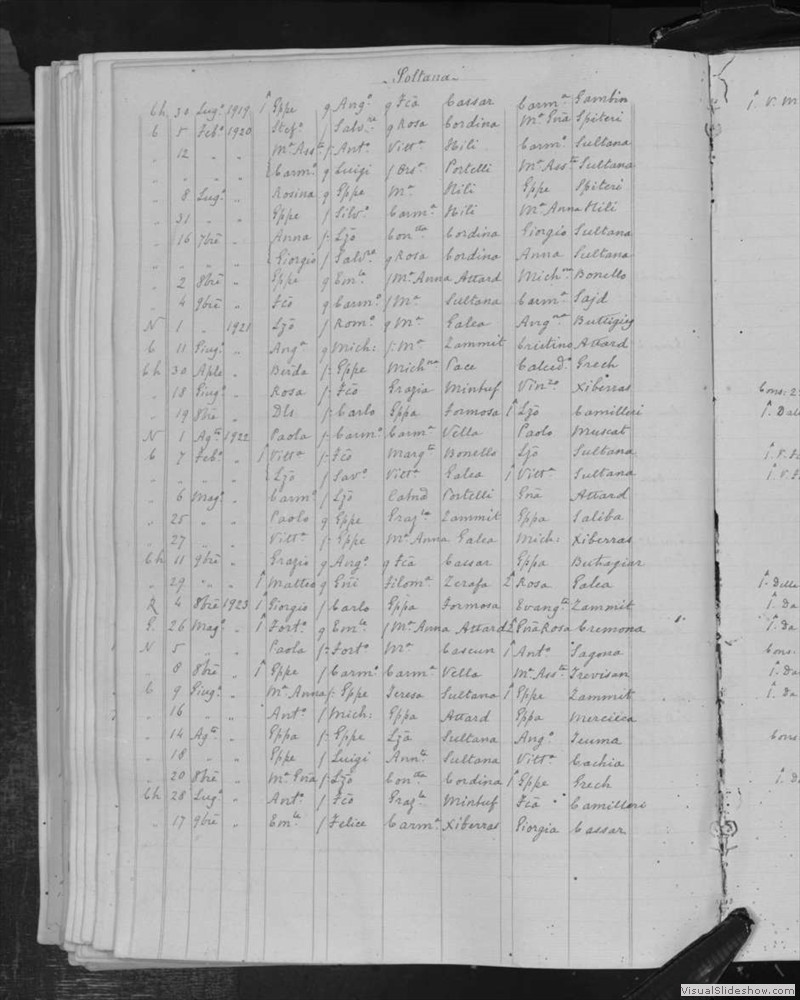 Soltana
Ch 30 Lug.º 1919 1ª Gppe g Ang.º g Fcã Cassar Carm.ª Gambin
C 5 Feb.º 1920 Stef.º / Salv.re g Rosa Cordina M.ª Gnã Spiteri
" 12 " " M.ª Ass.ta /: Ant.º Vitt.ª Hili Carm.º Sultana
" " " " Carm.º g Luigi / Ors.ª Portelli M.ª Ass.ta Sultana
" 8 Lug.º " Rosina g Gppe M.ª Hili Gppe Spiteri
" 31 " " Gppe / Silv.º Carm.ª Hili M.ª Anna Hili
" 16 7bre " Anna /: Lzõ Con.tta Cordina Giorgio Sultana
" " " " Giorgio / Salv.re g Rosa Cordina Anna Sultana
" 2 8bre " Gppe g Em.le / M.ª Anna Attard Mich.na Bonello
" 4 9bre " Fcõ g Carm.º / M.ª Sultana Carm.ª Sajd
N 1 " 1921 Lzõ / Rom.º g M.ª Galea Ang.na Buttigieg
C 11 Giug.º " Ang.ª g Mich: /: M.ª Zammit Cristina Attard
Ch 30 Aple " Berda /: Gppe Mich.na Pace Calced.ª Grech
" 18 Giug.º " Rosa /: Fcõ Grazia Mintuf Vin.zo Xiberras
" 19 8bre " Dls /: Carlo Gppa Formosa 1ª Lzõ Camilleri
N 1 Ag.to 1922 Paola /: Carm.º Carm.ª Vella Paolo Muscat
C 7 Feb.º " 1ª Vitt.ª /: Fcõ Marg.ta Bonello Lzõ Sultana
" " " " Lzõ / Sav.º Vitt.ª Galea 1ª Vitt.ª Sultana
" 6 Mag.º " Carm.º / Lzõ Catnã Portelli Gnã Attard
" 25 " " Paolo g Gppe Graz.la Zammit Gppa Saliba
" 27 " " Vitt.ª /: Gppe M.ª Anna Galea Mich: Xiberras
Ch 11 9bre " Grazio g Ang.º g Fcã Cassar Gppa Buttagiar
" 29 " " 1ª Matteo g Gnñ Filom.ª Zerafa 2ª Rosa Galea
R 4 8bre 1923 1ª Giorgio / Carlo Gppa Formosa Evang.ta Zammit
G. 26 Mag.º " 1ª Fort.º g Em.le / M.ª Anna Attard 2ª Gnã Rosa Cremona
N 5 " " Paola /: Fort.º M.ª Cascun 1ª Ant.º Sagona
" 8 8bre " 1ª Gppe / Carm.º Carm.ª Vella M.ª Ass.ta Trevisan
C 9 Giug.º " M.ª Anna /: Gppe Teresa Sultana 1ª Gppe Zammit
" 16 " " Ant.º / Mich: Gppa Attard Gppa Mercieca
" 14 Ag.to " Gppa /: Gppe Lzã Sultana Ang.º Teuma
" 18 " " Gppe / Luigi Ann.ta Sultana Vitt.ª Cachia
" 20 8bre " M.ª Gnã /: Lzõ Con.tta Cordina 1ª Gppe Grech
Ch 28 Lug.º " Ant.º / Fcõ Graz.la Mintuf Fcã Camilleri
" 17 9bre " Em.la / Felice Carm.ª Xiberras Giorgia Cassar
VisualSlideshow.com